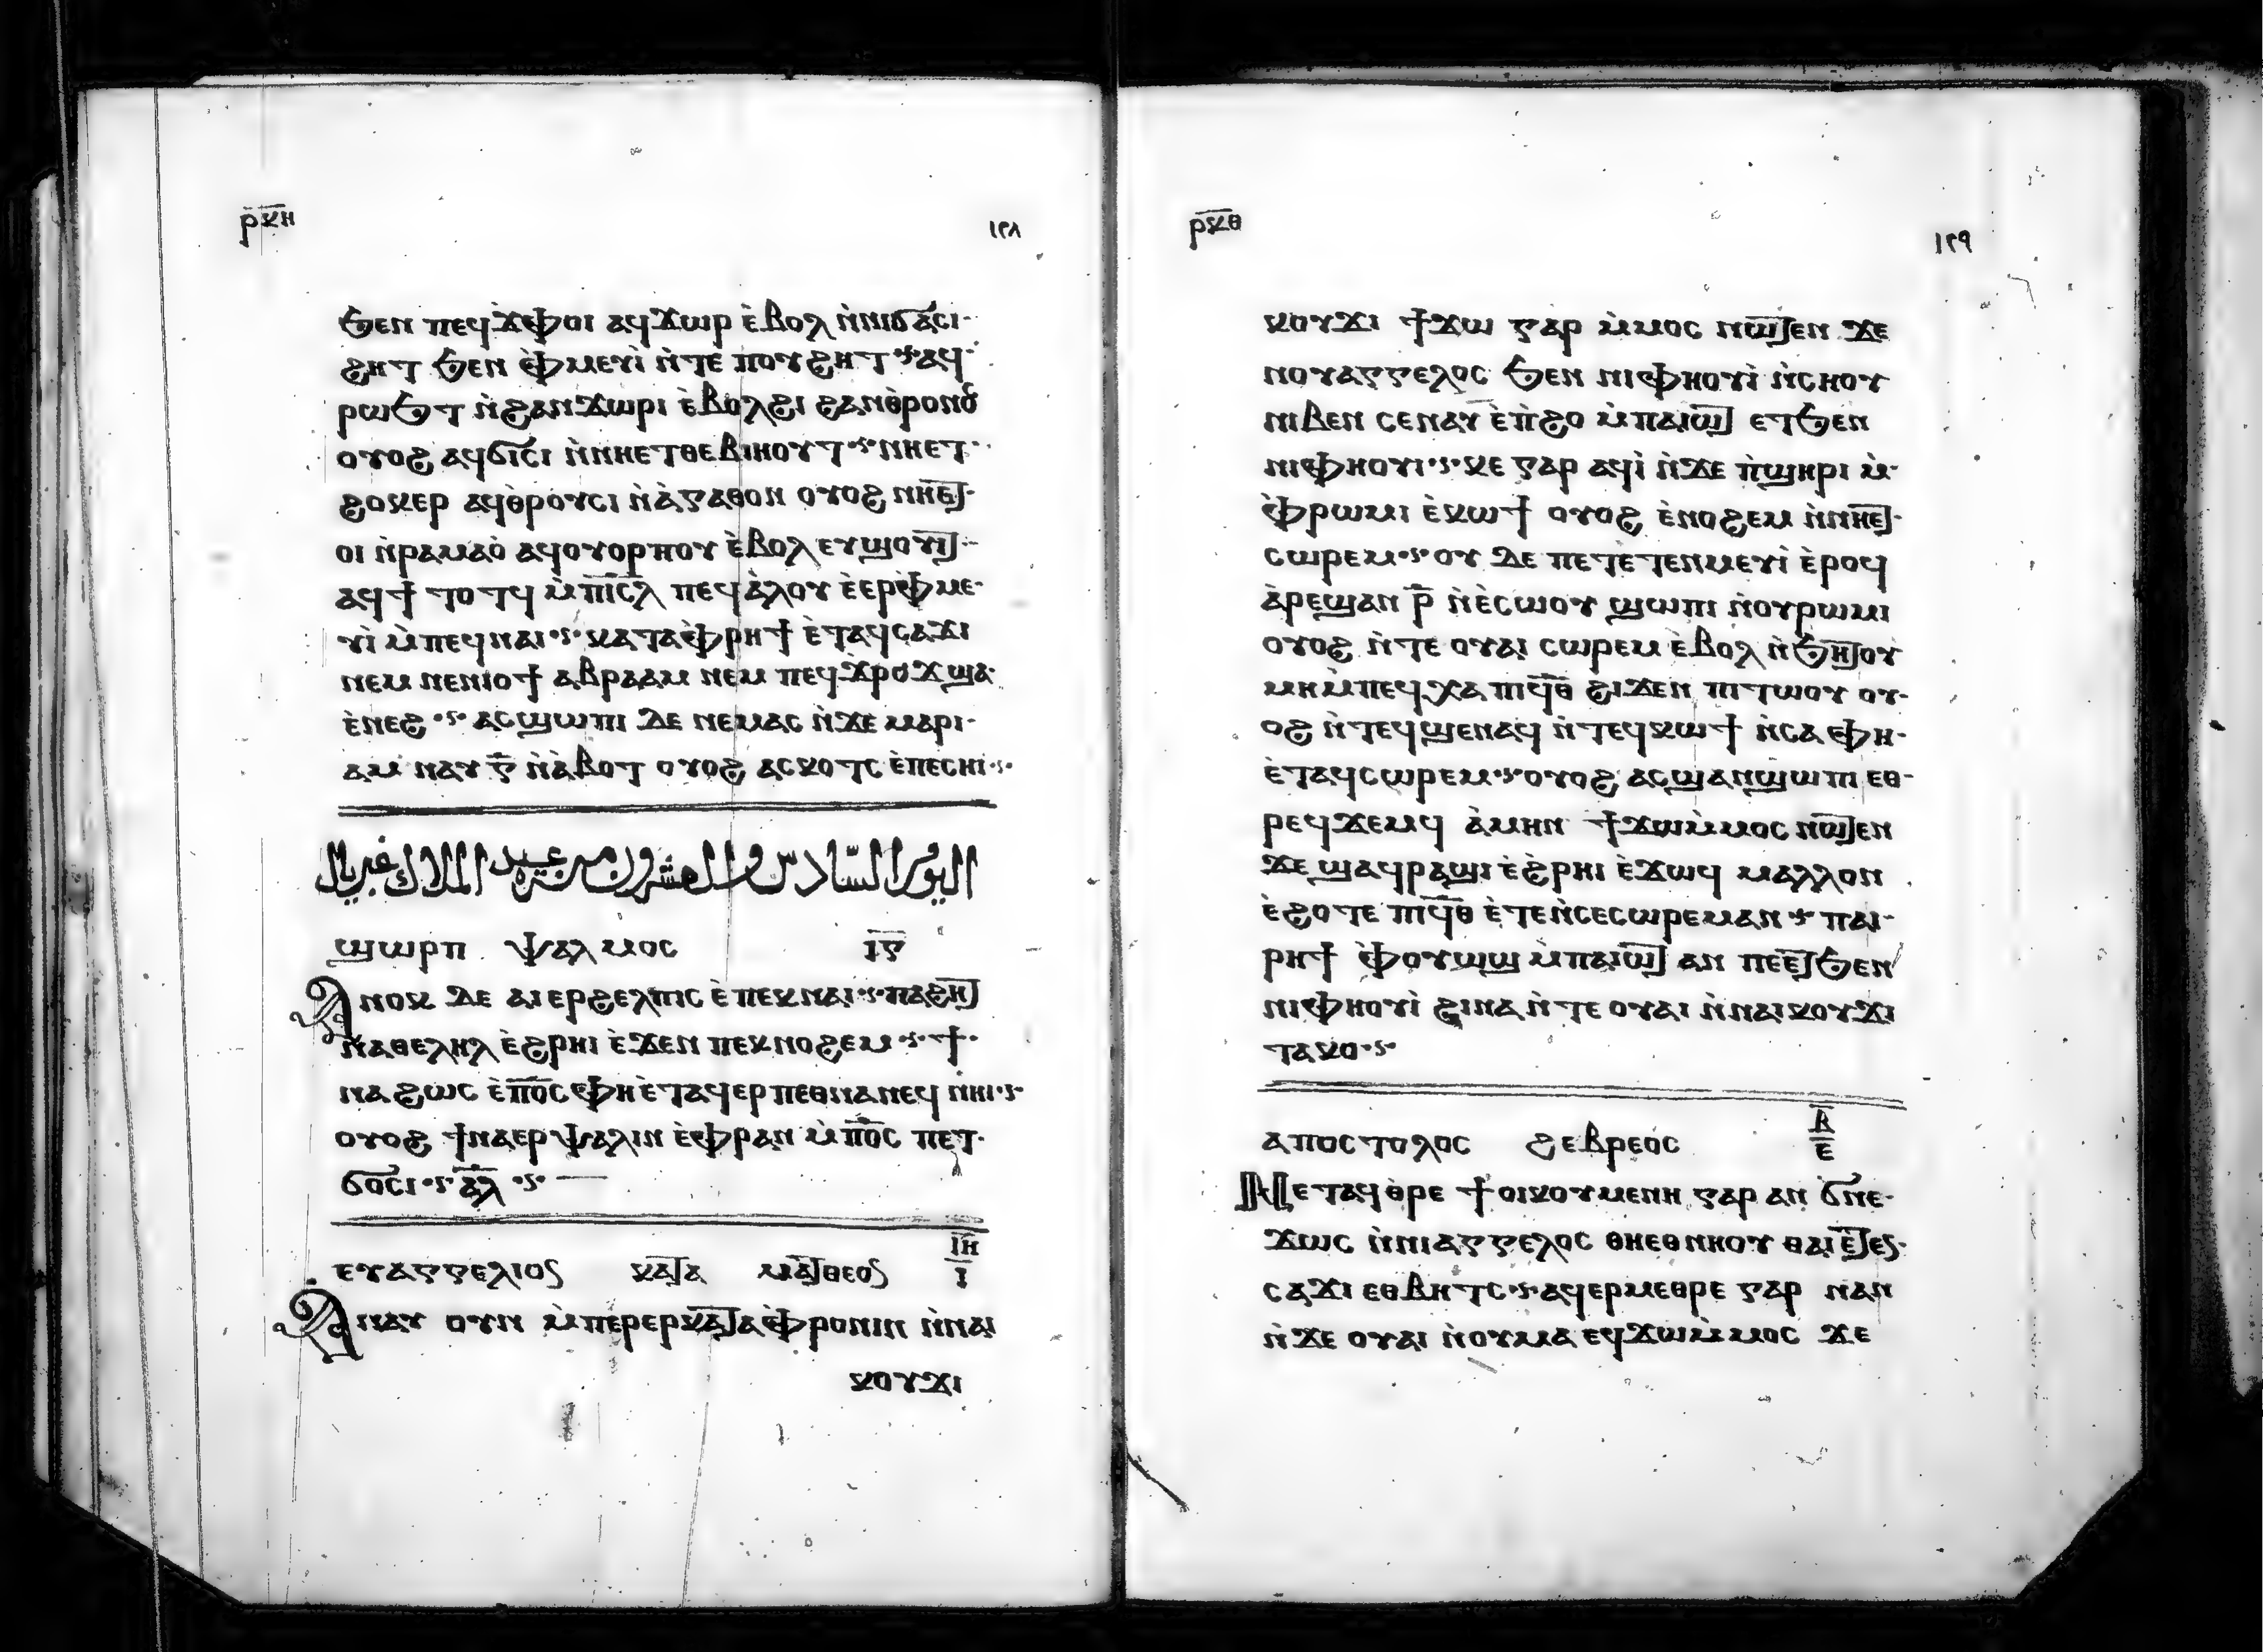 ⲣ̅ⲕ̅ⲏ̅ ١٢٨
ϧⲉⲛ ⲡⲉϥϫⲫⲟⲓ ⲁϥϫⲱⲣ ⲉ̀ⲃⲟⲗ ⲛ̀ⲛⲓϭⲁⲥⲓ·
ϩⲏⲧ ϧⲉⲛ ⲉ̀ⲫⲙⲉⲩⲓ̀ ⲛ̀ⲧⲉ ⲡⲟⲩϩⲏⲧ ⁘ ⲁϥ·
ⲣⲱϧⲧ ⲛ̀ϩⲁⲛϫⲱⲣⲓ ⲉ̀ⲃⲟⲗϩⲓ ϩⲁⲛⲑ̀ⲣⲟⲛⲟⲥ
ⲟⲩⲟϩ ⲁϥϭⲓⲥⲓ ⲛ̀ⲛⲏⲉⲧⲑⲉⲃⲓⲏⲟⲩⲧ ⁘ ⲛⲏⲉⲧ·
ϩⲟⲕⲉⲣ ⲁϥⲑ̀ⲣⲟⲩⲥⲓ ⲛ̀ⲁ̀ⲅⲁⲑⲟⲛ ⲟⲩⲟϩ ⲛⲏⲉⲧ·
ⲟⲓ ⲛ̀ⲣⲁⲙⲁⲟ̀ ⲁϥⲟⲩⲟⲣⲡⲟⲩ ⲉ̀ⲃⲟⲗ ⲉⲩϣⲟⲩⲓⲧ ⁘
ⲁϥϯ ⲧⲟⲧϥ ⲙ̀ⲡⲓ̅ⲥ̅ⲗ̅ ⲡⲉϥⲁ̀ⲗⲟⲩ ⲉ̀ⲉⲣⲫ̀ⲙⲉ·
ⲩⲓ̀ ⲙ̀ⲡⲉϥⲛⲁⲓ ⁘ ⲕⲁⲧⲁⲫ̀ⲣⲏϯ ⲉ̀ⲧⲁϥⲥⲁϫⲓ
ⲛⲉⲙ ⲛⲉⲛⲓⲟϯ ⲁⲃⲣⲁⲁⲙ ⲛⲉⲙ ⲡⲉϥϫ̀ⲣⲟϫ ϣⲁ·
ⲉ̀ⲛⲉϩ ⁘ ⲁⲥϣⲱⲡⲓ ⲇⲉ ⲛⲉⲙⲁⲥ ⲛ̀ϫⲉ ⲙⲁⲣⲓ·
ⲁⲙ ⲛⲁⲩ ⲅ̅ ⲛ̀ⲁ̀ⲃⲟⲧ ⲟⲩⲟϩ ⲁⲥⲕⲟⲧⲥ ⲉ̀ⲡⲉⲥⲏⲓ ⁘
اليوم السادس والعشرون منه عيد الملاك غبريال
ϣⲱⲣⲡ ⲯⲁⲗⲙⲟⲥ ⲓ̅ⲅ̅
Ⲁⲛⲟⲕ ⲇⲉ ⲁⲓⲉⲣϩⲉⲗⲡⲓⲥ ⲉ̀ⲡⲉⲕⲛⲁⲓ ⁘ ⲡⲁϩⲏⲧ
ⲛⲁⲑⲉⲗⲏⲗ ⲉ̀ϩⲣⲏⲓ ⲉ̀ϫⲉⲛ ⲡⲉⲕⲛⲟϩⲉⲙ ⁘ ϯ·
ⲛⲁϩⲱⲥ ⲉ̀ⲡ̅ⲟ̅ⲥ̅ ⲫⲏⲉ̀ⲧⲁϥⲉⲣⲡⲉⲑⲛⲁⲛⲉϥ ⲛⲏⲓ ⁘
ⲟⲩⲟϩ ϯⲛⲁⲉⲣⲯⲁⲗⲓⲛ ⲉ̀ⲫⲣⲁⲛ ⲙ̀ⲡ̅ⲟ̅ⲥ̅ ⲡⲉⲧ·
ϭⲟⲥⲓ ⁘ ⲁ̅ⲗ̅ ⁘
ⲉⲩⲁⲅⲅⲉⲗⲓⲟⲥ ⲕⲁⲧⲁ ⲙⲁⲧⲑⲉⲟⲥ ⲓ̅ⲏ̅ ⲓ̅
Ⲁⲛⲁⲩ ⲟⲩⲛ ⲙ̀ⲡⲉⲣⲉⲣⲕⲁⲧⲁⲫ̀ⲣⲟⲛⲓⲛ ⲛ̀ⲛⲁⲓ
ⲕⲟⲩϫⲓ
ⲣ̅ⲕ̅ⲑ̅ ١٢٩
ⲕⲟⲩϫⲓ ϯϫⲱ ⲅⲁⲣ ⲙ̀ⲙⲟⲥ ⲛⲱⲧⲉⲛ ϫⲉ
ⲛⲟⲩⲁⲅⲅⲉⲗⲟⲥ ϧⲉⲛ ⲛⲓⲫⲏⲟⲩⲓ̀ ⲛ̀ⲥⲏⲟⲩ
ⲛⲓⲃⲉⲛ ⲥⲉⲛⲁⲩ ⲉ̀ⲡ̀ϩⲟ ⲙ̀ⲡⲁⲓⲱⲧ ⲉⲧϧⲉⲛ
ⲛⲓⲫⲏⲟⲩⲓ ⁘ ⲕⲉ ⲅⲁⲣ ⲁϥⲓ̀ ⲛ̀ϫⲉ ⲡ̀ϣⲏⲣⲓ ⲙ̀·
ⲫ̀ⲣⲱⲙⲓ ⲉ̀ⲕⲱϯ ⲟⲩⲟϩ ⲉ̀ⲛⲟϩⲉⲙ ⲛ̀ⲛⲏⲉⲧ·
ⲥⲱⲣⲉⲙ ⁘ ⲟⲩ ⲇⲉ ⲡⲉⲧⲉⲧⲉⲛⲙⲉⲩⲓ̀ ⲉ̀ⲣⲟϥ
ⲁ̀ⲣⲉϣⲁⲛ ⲣ̅ ⲛ̀ⲉ̀ⲥⲱⲟⲩ ϣⲱⲡⲓ ⲛ̀ⲟⲩⲣⲱⲙⲓ
ⲟⲩⲟϩ ⲛ̀ⲧⲉ ⲟⲩⲁⲓ ⲥⲱⲣⲉⲙ ⲉ̀ⲃⲟⲗ ⲛ̀ϧⲏⲧⲟⲩ
ⲙⲏ ⲙ̀ⲡⲉϥⲭⲁ ⲡⲓϥ̅ⲑ̅ ϩⲓϫⲉⲛ ⲡⲓⲧⲱⲟⲩ ⲟⲩ·
ⲟϩ ⲛ̀ⲧⲉϥϣⲉⲛⲁϥ ⲛ̀ⲧⲉϥⲕⲱϯ ⲛ̀ⲥⲁ ⲫⲏ·
ⲉ̀ⲧⲁϥⲥⲱⲣⲉⲙ ⁘ ⲟⲩⲟϩ ⲁⲥϣⲁⲛϣⲱⲡⲓ ⲉⲑ·
ⲣⲉϥϫⲉⲙϥ ⲁ̀ⲙⲏⲛ ϯϫⲱⲙ̀ⲙⲟⲥ ⲛⲱⲧⲉⲛ
ϫⲉ ϣⲁϥⲣⲁϣⲓ ⲉ̀ϩ̀ⲣⲏⲓ ⲉ̀ϫⲱϥ ⲙⲁⲗⲗⲟⲛ
ⲉ̀ϩⲟⲧⲉ ⲡⲓϥ̅ⲑ̅ ⲉ̀ⲧⲉⲛ̀ⲥⲉⲥⲱⲣⲉⲙⲁⲛ ⁘ ⲡⲁⲓ·
ⲣⲏϯ ⲫ̀ⲟⲩⲱϣ ⲙ̀ⲡⲁⲓⲱⲧ ⲁⲛ ⲡⲉⲉⲧϧⲉⲛ
ⲛⲓⲫⲏⲟⲩⲓ̀ ϩⲓⲛⲁ ⲛ̀ⲧⲉ ⲟⲩⲁⲓ ⲛ̀ⲛⲁⲓⲕⲟⲩϫⲓ
ⲧⲁⲕⲟ ⁘
ⲁⲡⲟⲥⲧⲟⲗⲟⲥ ϩⲉⲃⲣⲉⲟⲥ ⲃ̅ ⲉ̅
Ⲛⲉⲧⲁϥⲑ̀ⲣⲉ ϯⲟⲓⲕⲟⲩⲙⲉⲛⲏ ⲅⲁⲣ ⲁⲛ ϭⲛⲉ·
ϫⲱⲥ ⲛ̀ⲛⲓⲁⲅⲅⲉⲗⲟⲥ ⲑⲏⲉⲑⲛⲏⲟⲩ ⲑⲁⲓ ⲉ̀ⲧⲉⲥ·
ⲥⲁϫⲓ ⲉⲑⲃⲏⲧⲥ ⁘ ⲁϥⲉⲣⲙⲉⲑⲣⲉ ⲅⲁⲣ ⲛⲁⲛ
ⲛ̀ϫⲉ ⲟⲩⲁⲓ ⲛ̀ⲟⲩⲙⲁ ⲉϥϫⲱⲙ̀ⲙⲟⲥ ϫⲉ